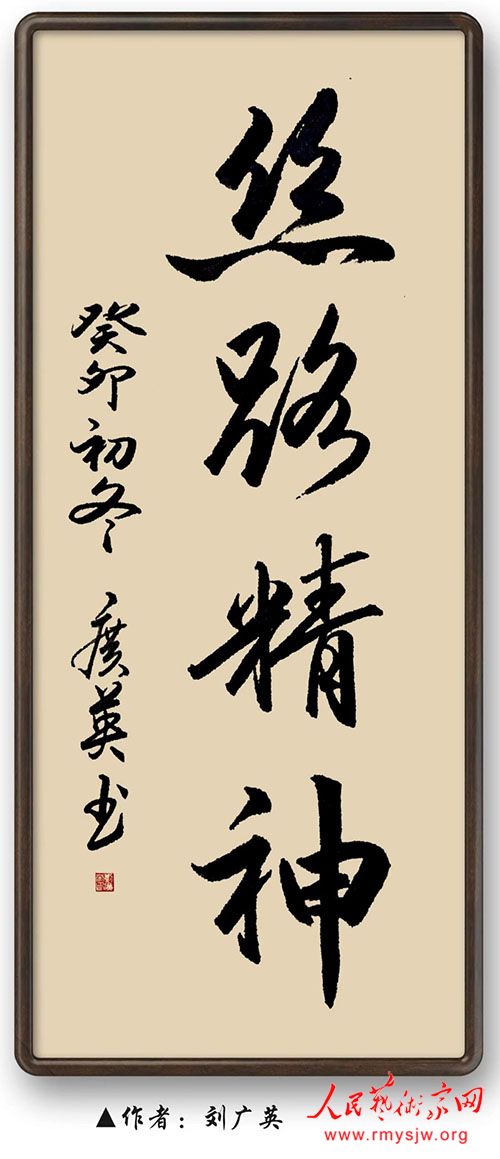 丝路精神
癸卯初冬 广英书
▲作者：刘广英
人民艺术家网
www.rmysjw.org